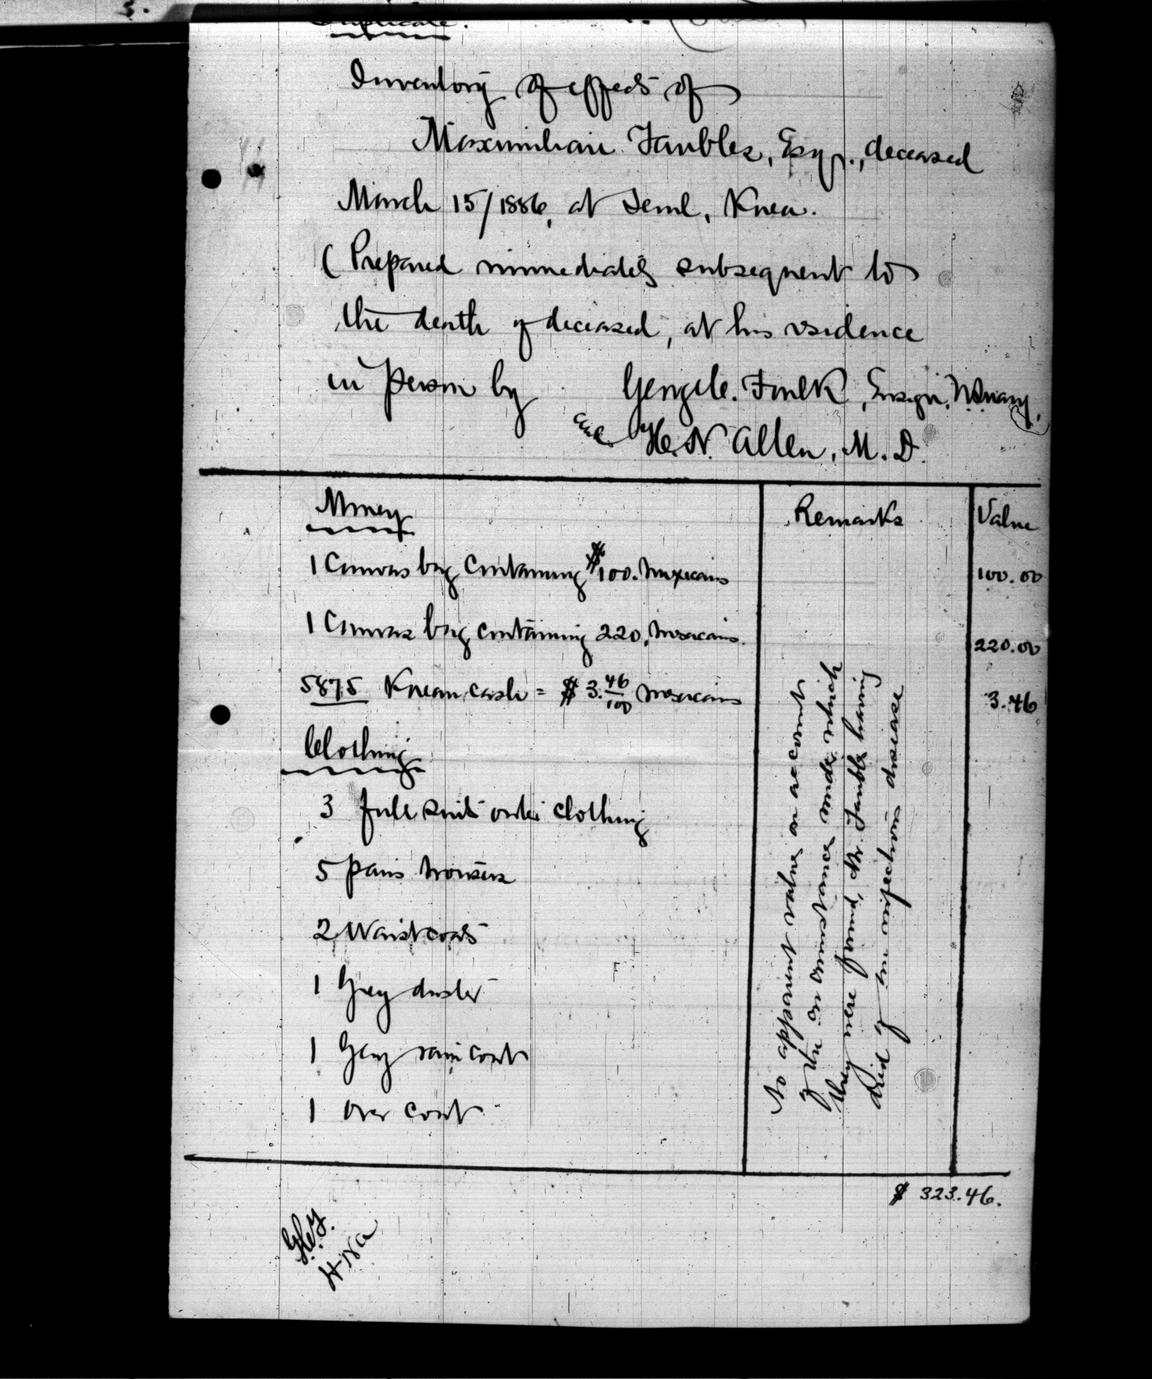 Duplicate.
Inventory of effects of
Maximilian Taubles, Esqr., deceased
March 15/1886, at Seoul, Korea.
(Prepared immediately subsequent to
the death of deceased, at his residence
in person by George C. Foulk, Ensign, U.S. Navy,
and H. N. Allen, M. D.
Money
Remarks
Value
1 Canvas bag containing $100. Mexicans
100.00
1 Canvas bag containing 220, Mexicans.
220.00
5875 Korean cash = $ 3.46/100 Mexicans
3.46
Clothing
3 full suits outer clothing
5 pairs trousers
2 Waistcoats
1 Grey duster
1 Grey rain coat
1 Over coat
No apparent value on account
of the circumstances under which
they were found, Mr. Taubles having
died of an infectious disease
$ 323.46.
G.C.F.
HNA